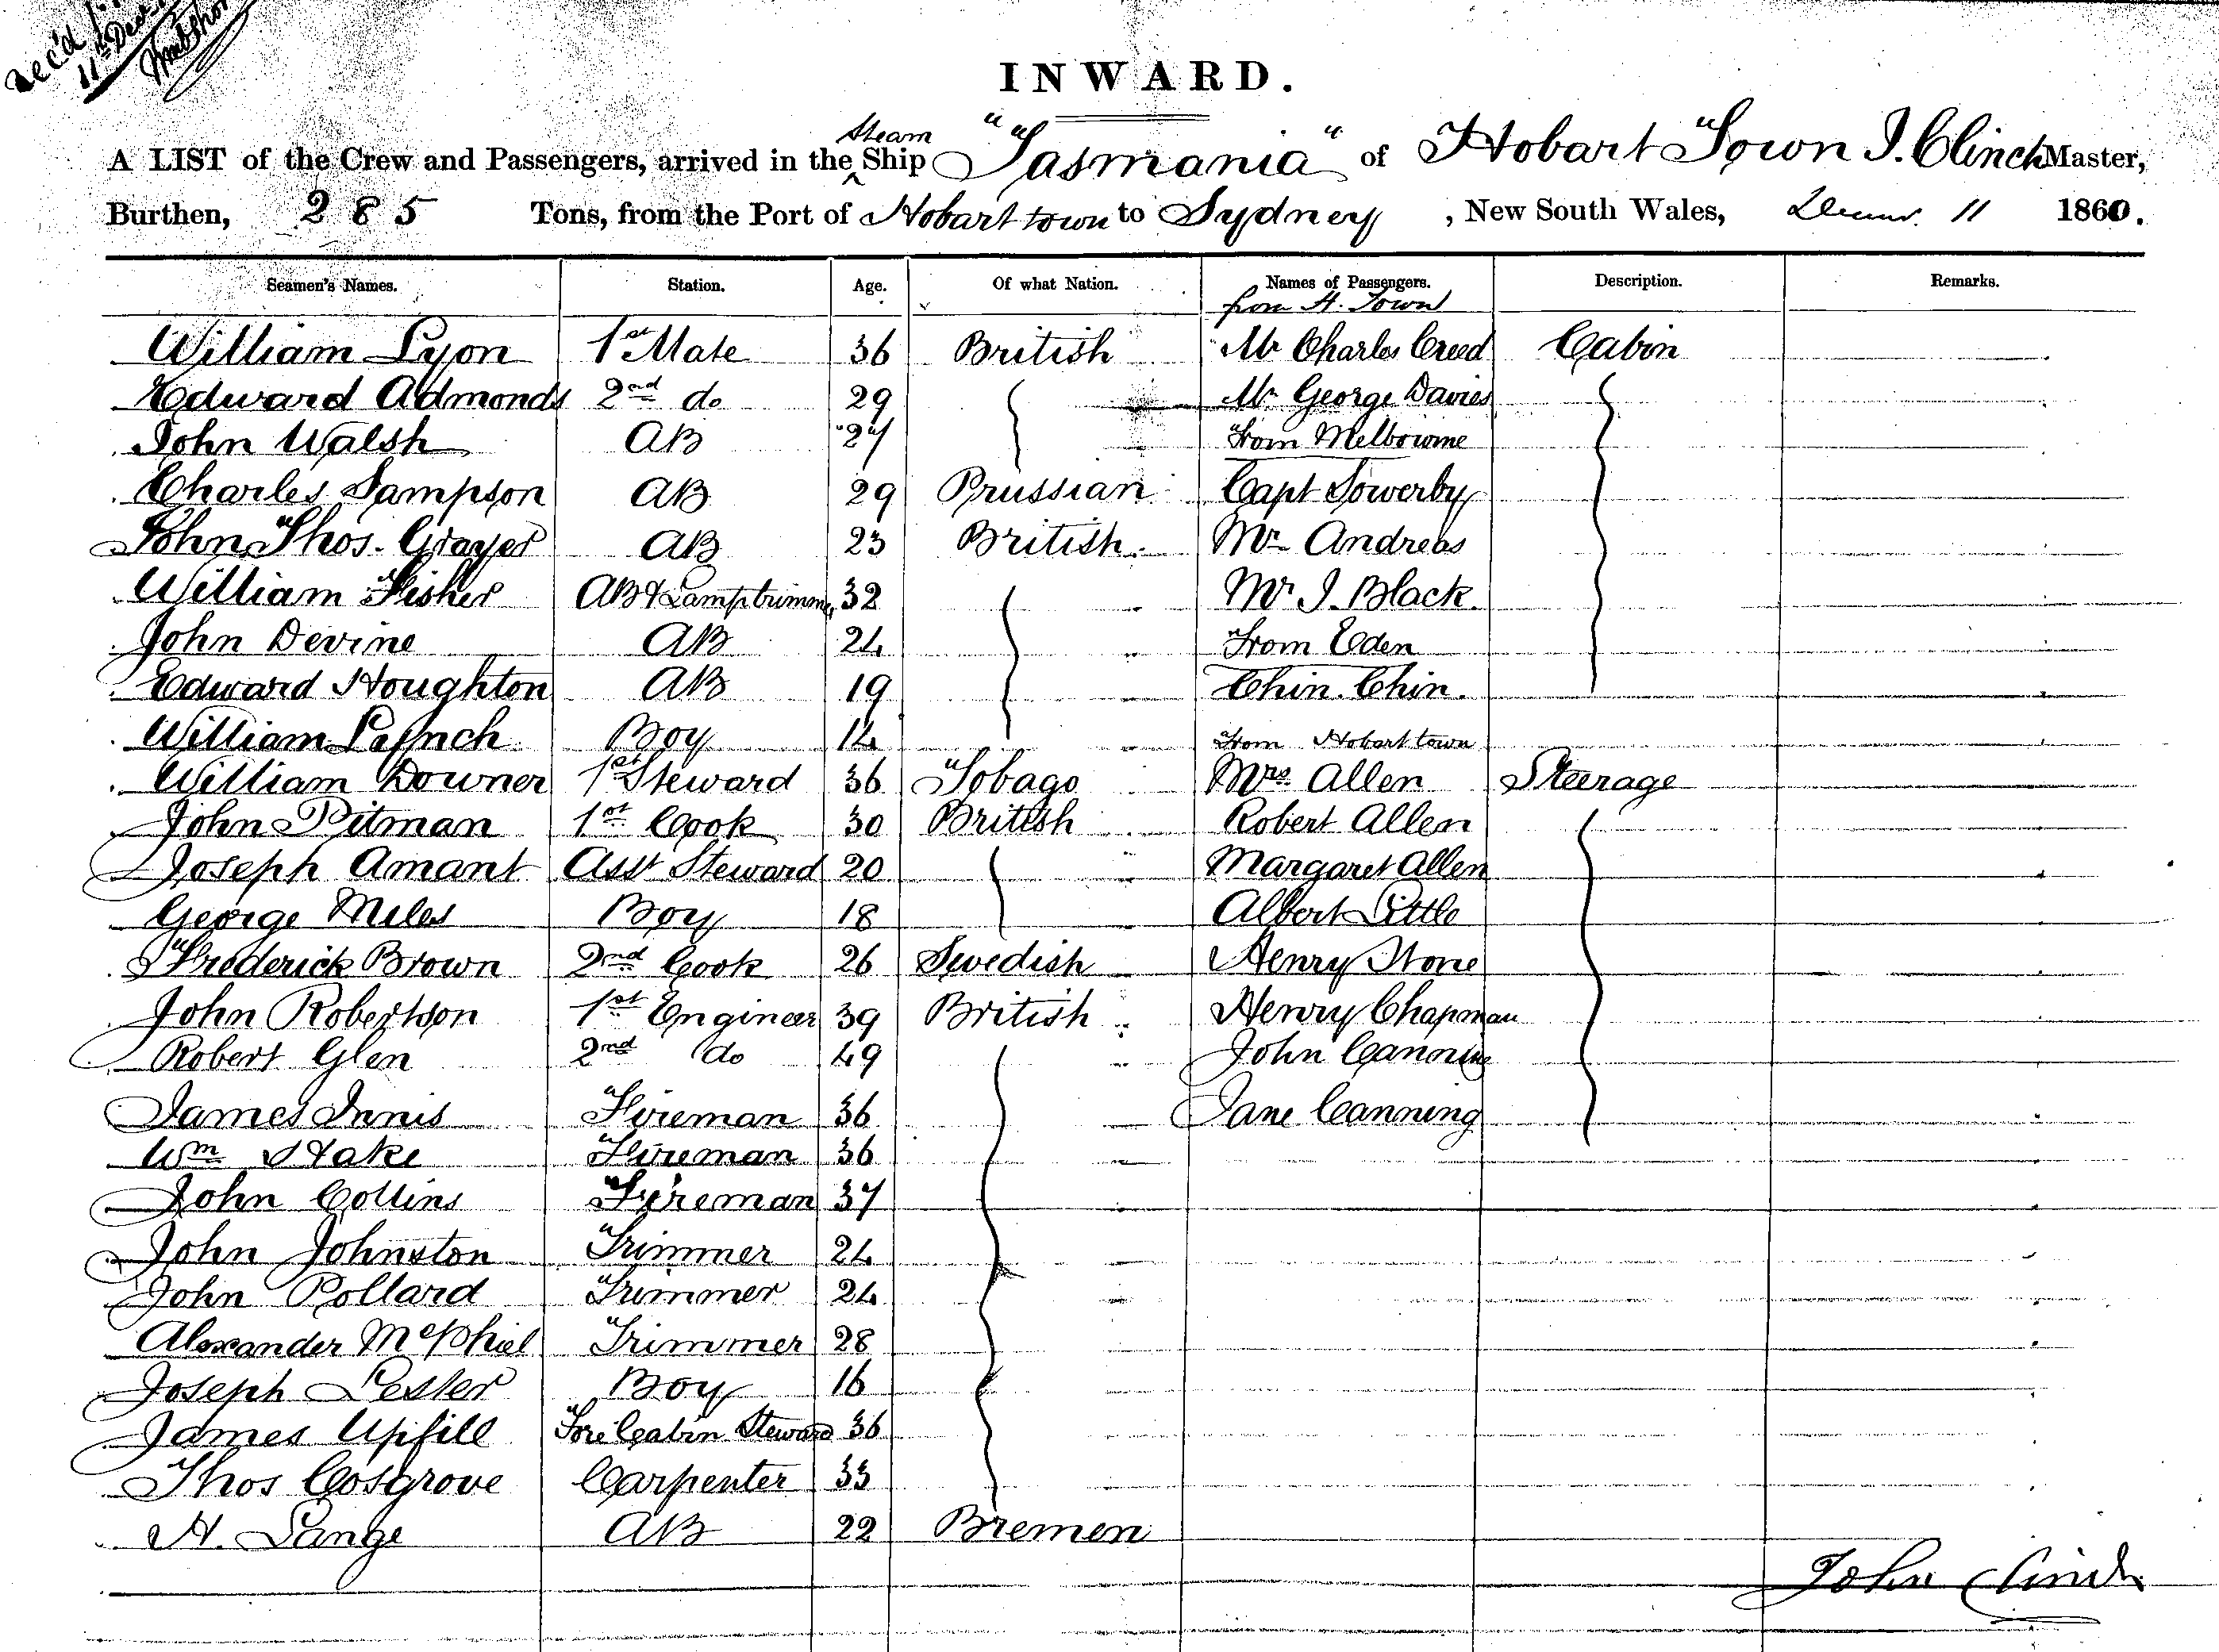 Rec'd
11th Decr
INWARD.
A LIST of the Crew and Passengers, arrived in the Steam Ship "Tasmania" of Hobart Town J. Clinch Master,
Burthen, 285 Tons, from the Port of Hobart town to Sydney, New South Wales, 11 1860.
Seamen's Names. Station. Age. Of what Nation. Names of Passengers. Description. Remarks.
from H. Town
William Lyon 1st Mate 36 British Mr Charles Creed Cabin
Edward Admonds 2nd do 29 Mr George Davies
John Walsh AB 27 From Melbourne
Charles Sampson AB 29 Prussian Capt Sowerby
John Thos. Grayer AB 23 British Mr Andreas
William Fisher AB & Lamptrimmer 32 Mr J. Black
John Devine AB 24 From Eden
Edward Houghton AB 19 Chin. Chin.
William Boy 14 From Hobart town
William Downer 1st Steward 36 Tobago Mrs Allen Steerage
John Pitman 1st Cook 30 British Robert Allen
Joseph Amant Asst Steward 20 Margaret Allen
George Miles Boy 18 Albert Little
Frederick Brown 2nd Cook 26 Swedish Henry Stone
John Robertson 1st Engineer 39 British Henry Chapman
Robert Glen 2nd do 49 John Canning
James Innis Fireman 36 Jane Canning
Wm Hake Fireman 36
John Collins Fireman 37
John Johnston Trimmer 24
John Pollard Trimmer 24
Alexander McPhiel Trimmer 28
Joseph Lester Boy 16
James Upfill Fore Cabin Steward 36
Thos Cosgrove Carpenter 33
H. Lange AB 22 Bremen
John Clinch